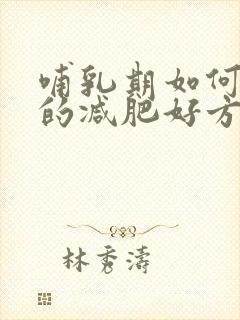 哺乳期如何
的减肥好方
林秀濤